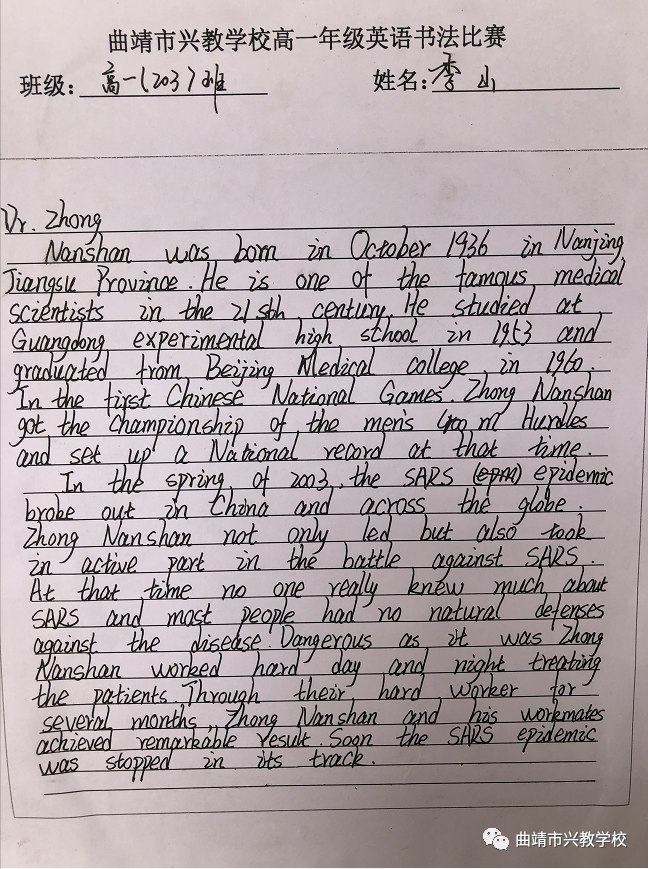 曲靖市兴教学校高一年级英语书法比赛
班级: 高一(203)班 姓名: 李山
Dr. Zhong
Nanshan was born in October 1936 in Nanjing,
Jiangsu Province. He is one of the famous medical
scientists in the 21sth century. He studied at
Guangdong experimental high school in 1953 and
graduated from Beijing Medical college in 1960.
In the first Chinese National Games. Zhong Nanshan
got the championship of the men's 400 m Hurdles
and set up a National record at that time.
In the spring of 2003, the SARS (epm) epidemic
broke out in China and across the globe.
Zhong Nanshan not only led but also took
in active part in the battle against SARS.
At that time no one really knew much about
SARS and most people had no natural defenses
against the disease. Dangerous as it was Zhong
Nanshan worked hard day and night treating
the patients. Through their hard worker for
several months, Zhong Nanshan and his workmates
achieved remarkable result. Soon the SARS epidemic
was stopped in its track.
曲靖市兴教学校